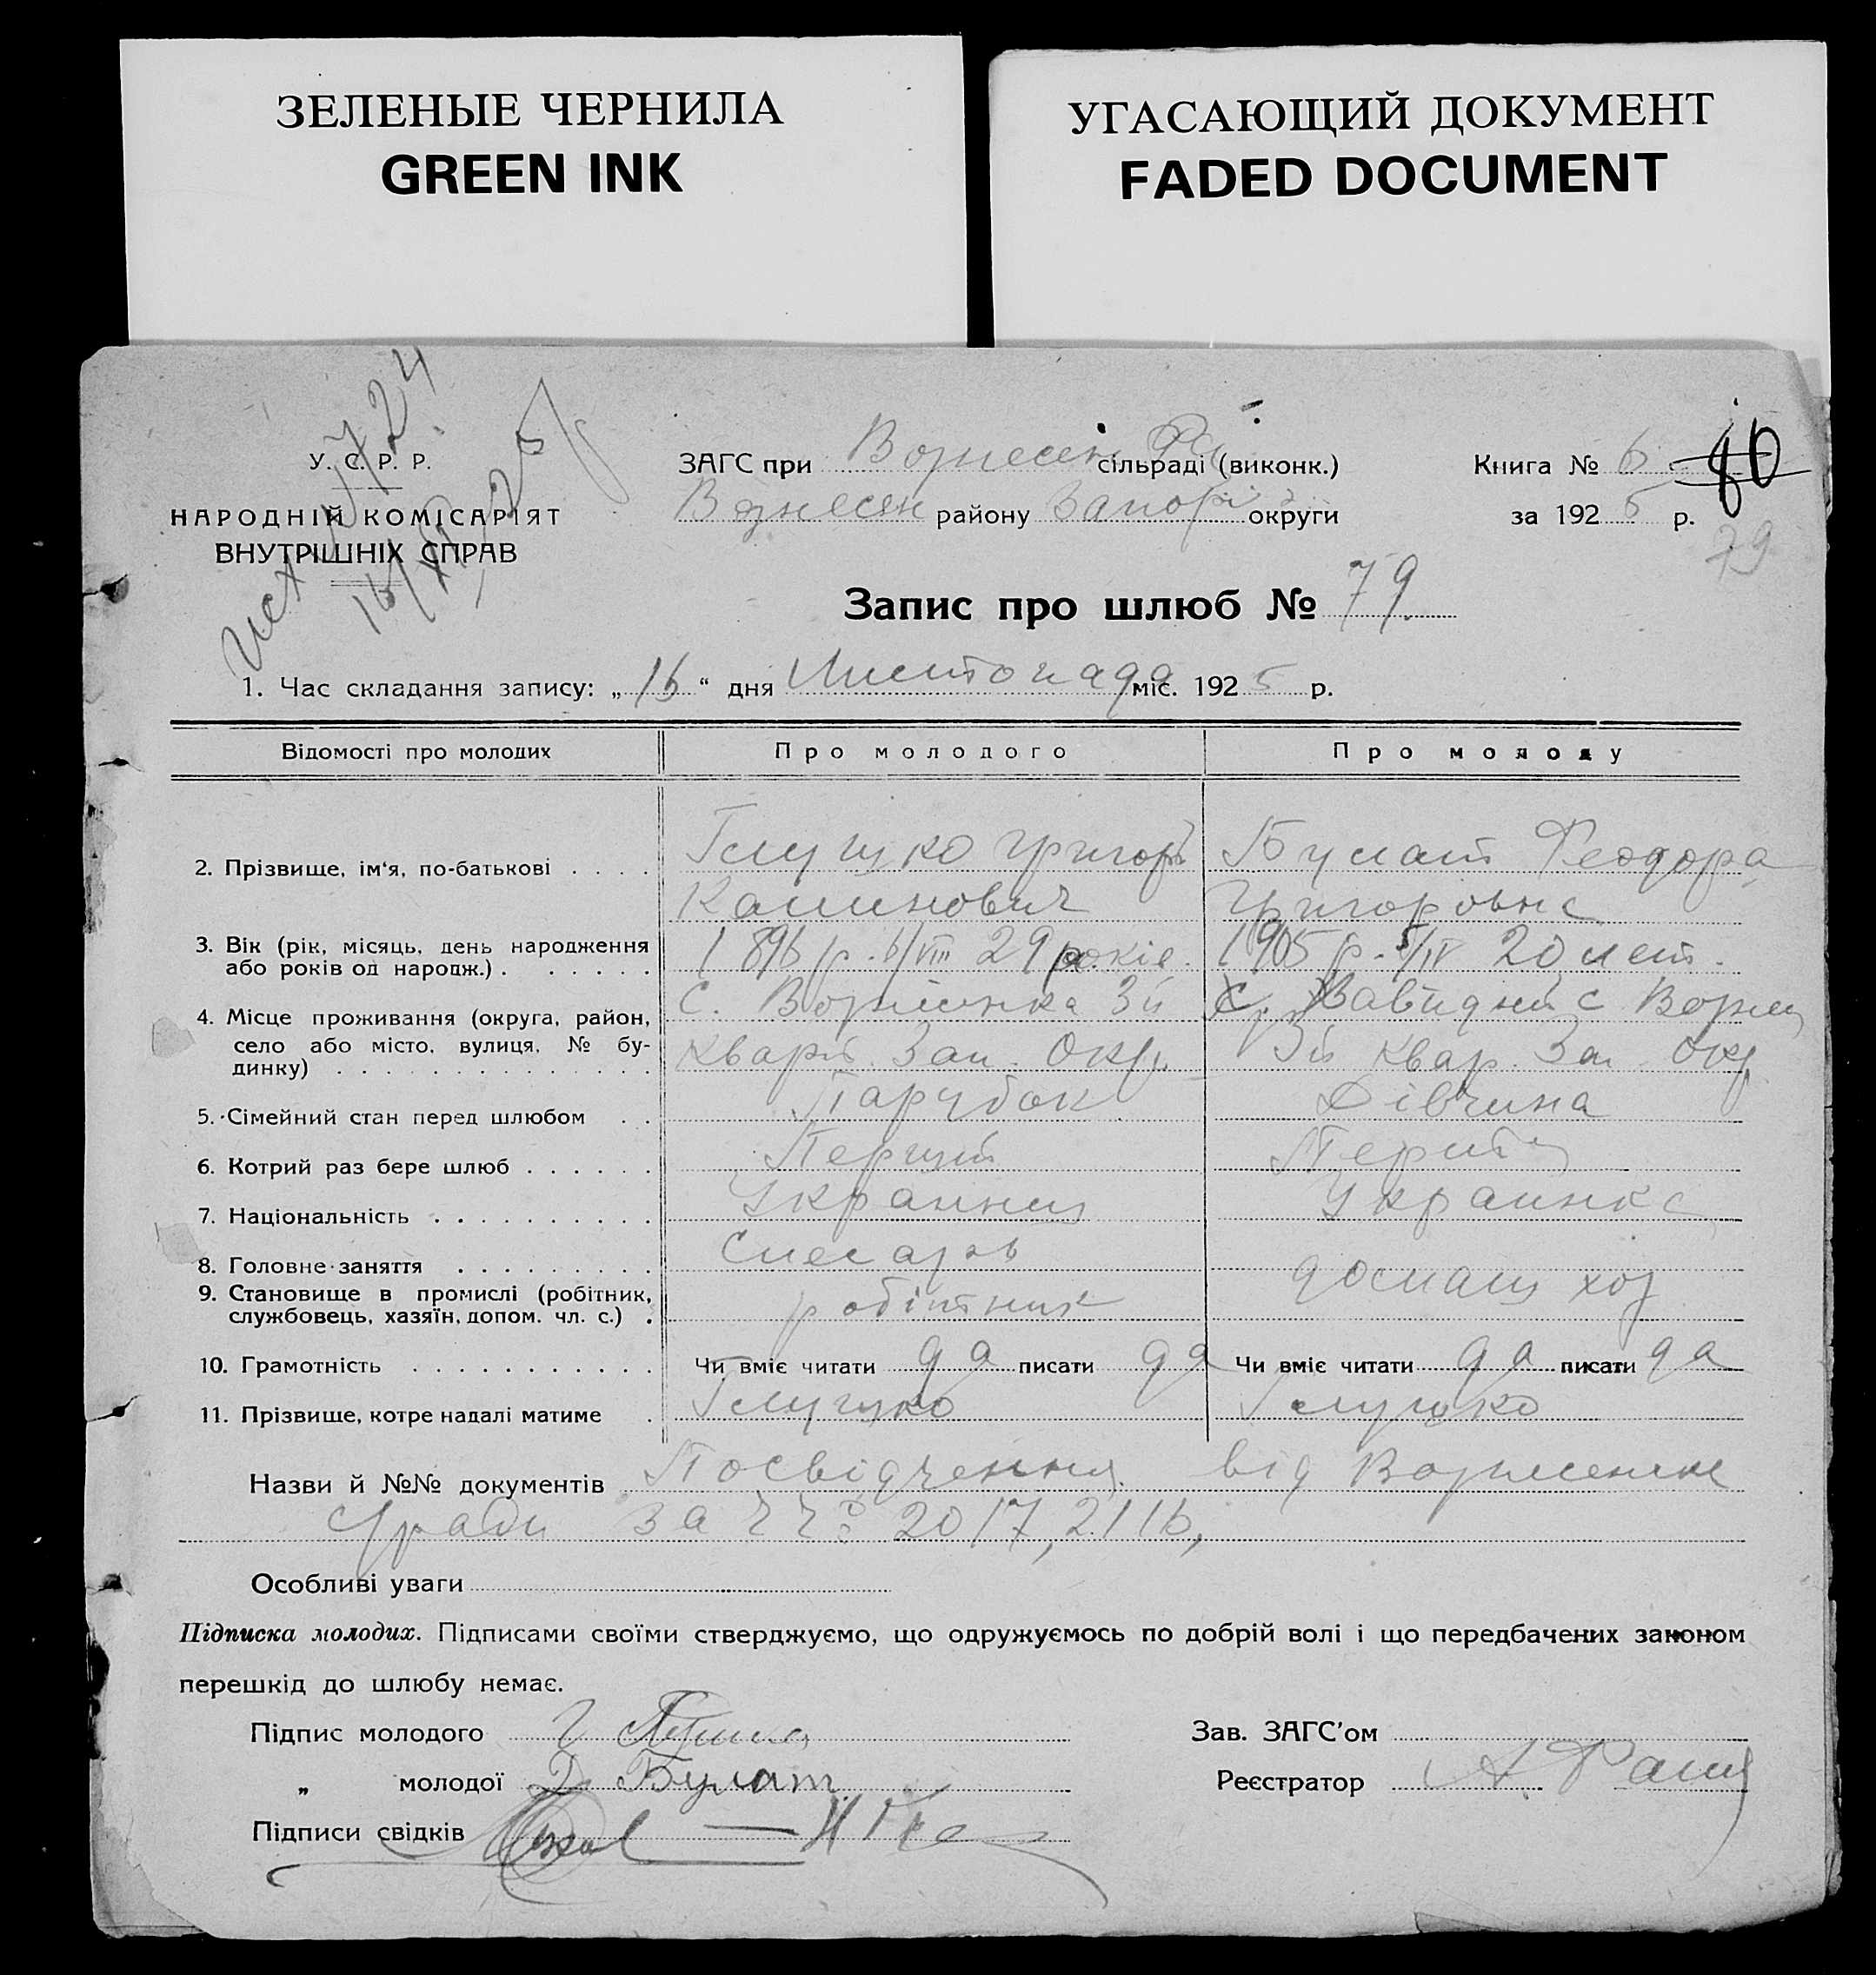 ЗЕЛЕНЫЕ ЧЕРНИЛА
GREEN INK
УГАСАЮЩИЙ ДОКУМЕНТ
FADED DOCUMENT
У. С. Р. Р.
НАРОДНІЙ КОМІСАРІЯТ
ВНУТРІШНІХ СПРАВ
ЗАГС при Вознесен сільраді (виконк.)
Вознесен району Запоріз округи
Книга № 6
80
за 1925 р.
79
Запис про шлюб № 79.
1. Час складання запису: „16“ дня Листопада міс. 1925 р.
Відомості про молодих Про молодого Про молоду
2. Прізвище, ім'я, по-батькові . . . . Глушко Григорій Булат Феодора
Калинович Григоровна
3. Вік (рік, місяць, день народження 1896 р. 6/VIII 29 років. 1905 р. 5/IV 20 лет.
або років од народж.) . . . . . .
4. Місце проживання (округа, район, с. Вознесенка 3й с Вознес
село або місто, вулиця, № бу- Кварт. Зап. Окр. 3й Квар. Зап. Окр
динку) . . . . . . . . . . . . . .
5. Сімейний стан перед шлюбом . . Парубок Дівчина
6. Котрий раз бере шлюб . . . . . . Перший Перший
7. Національність . . . . . . . . . . Украинец Украинка
8. Головне заняття . . . . . . . . . Слесарь
домаш хоз
9. Становище в промислі (робітник, робітник
службовець, хазяїн, допом. чл. с.) .
10. Грамотність . . . . . . . . . . . Чи вміє читати да писати да Чи вміє читати да писати да
11. Прізвище, котре надалі матиме . Глушко Глушко
Назви й №№ документів Посвідчення від Вознесенск
с/ради за ч ч: 2017, 2116,
Особливі уваги
Підписка молодих. Підписами своїми стверджуємо, що одружуємось по добрій волі і що передбачених законом
перешкід до шлюбу немає.
Підпис молодого Г
Зав. ЗАГС'ом
„ молодої Булат
Реєстратор
Підписи свідків